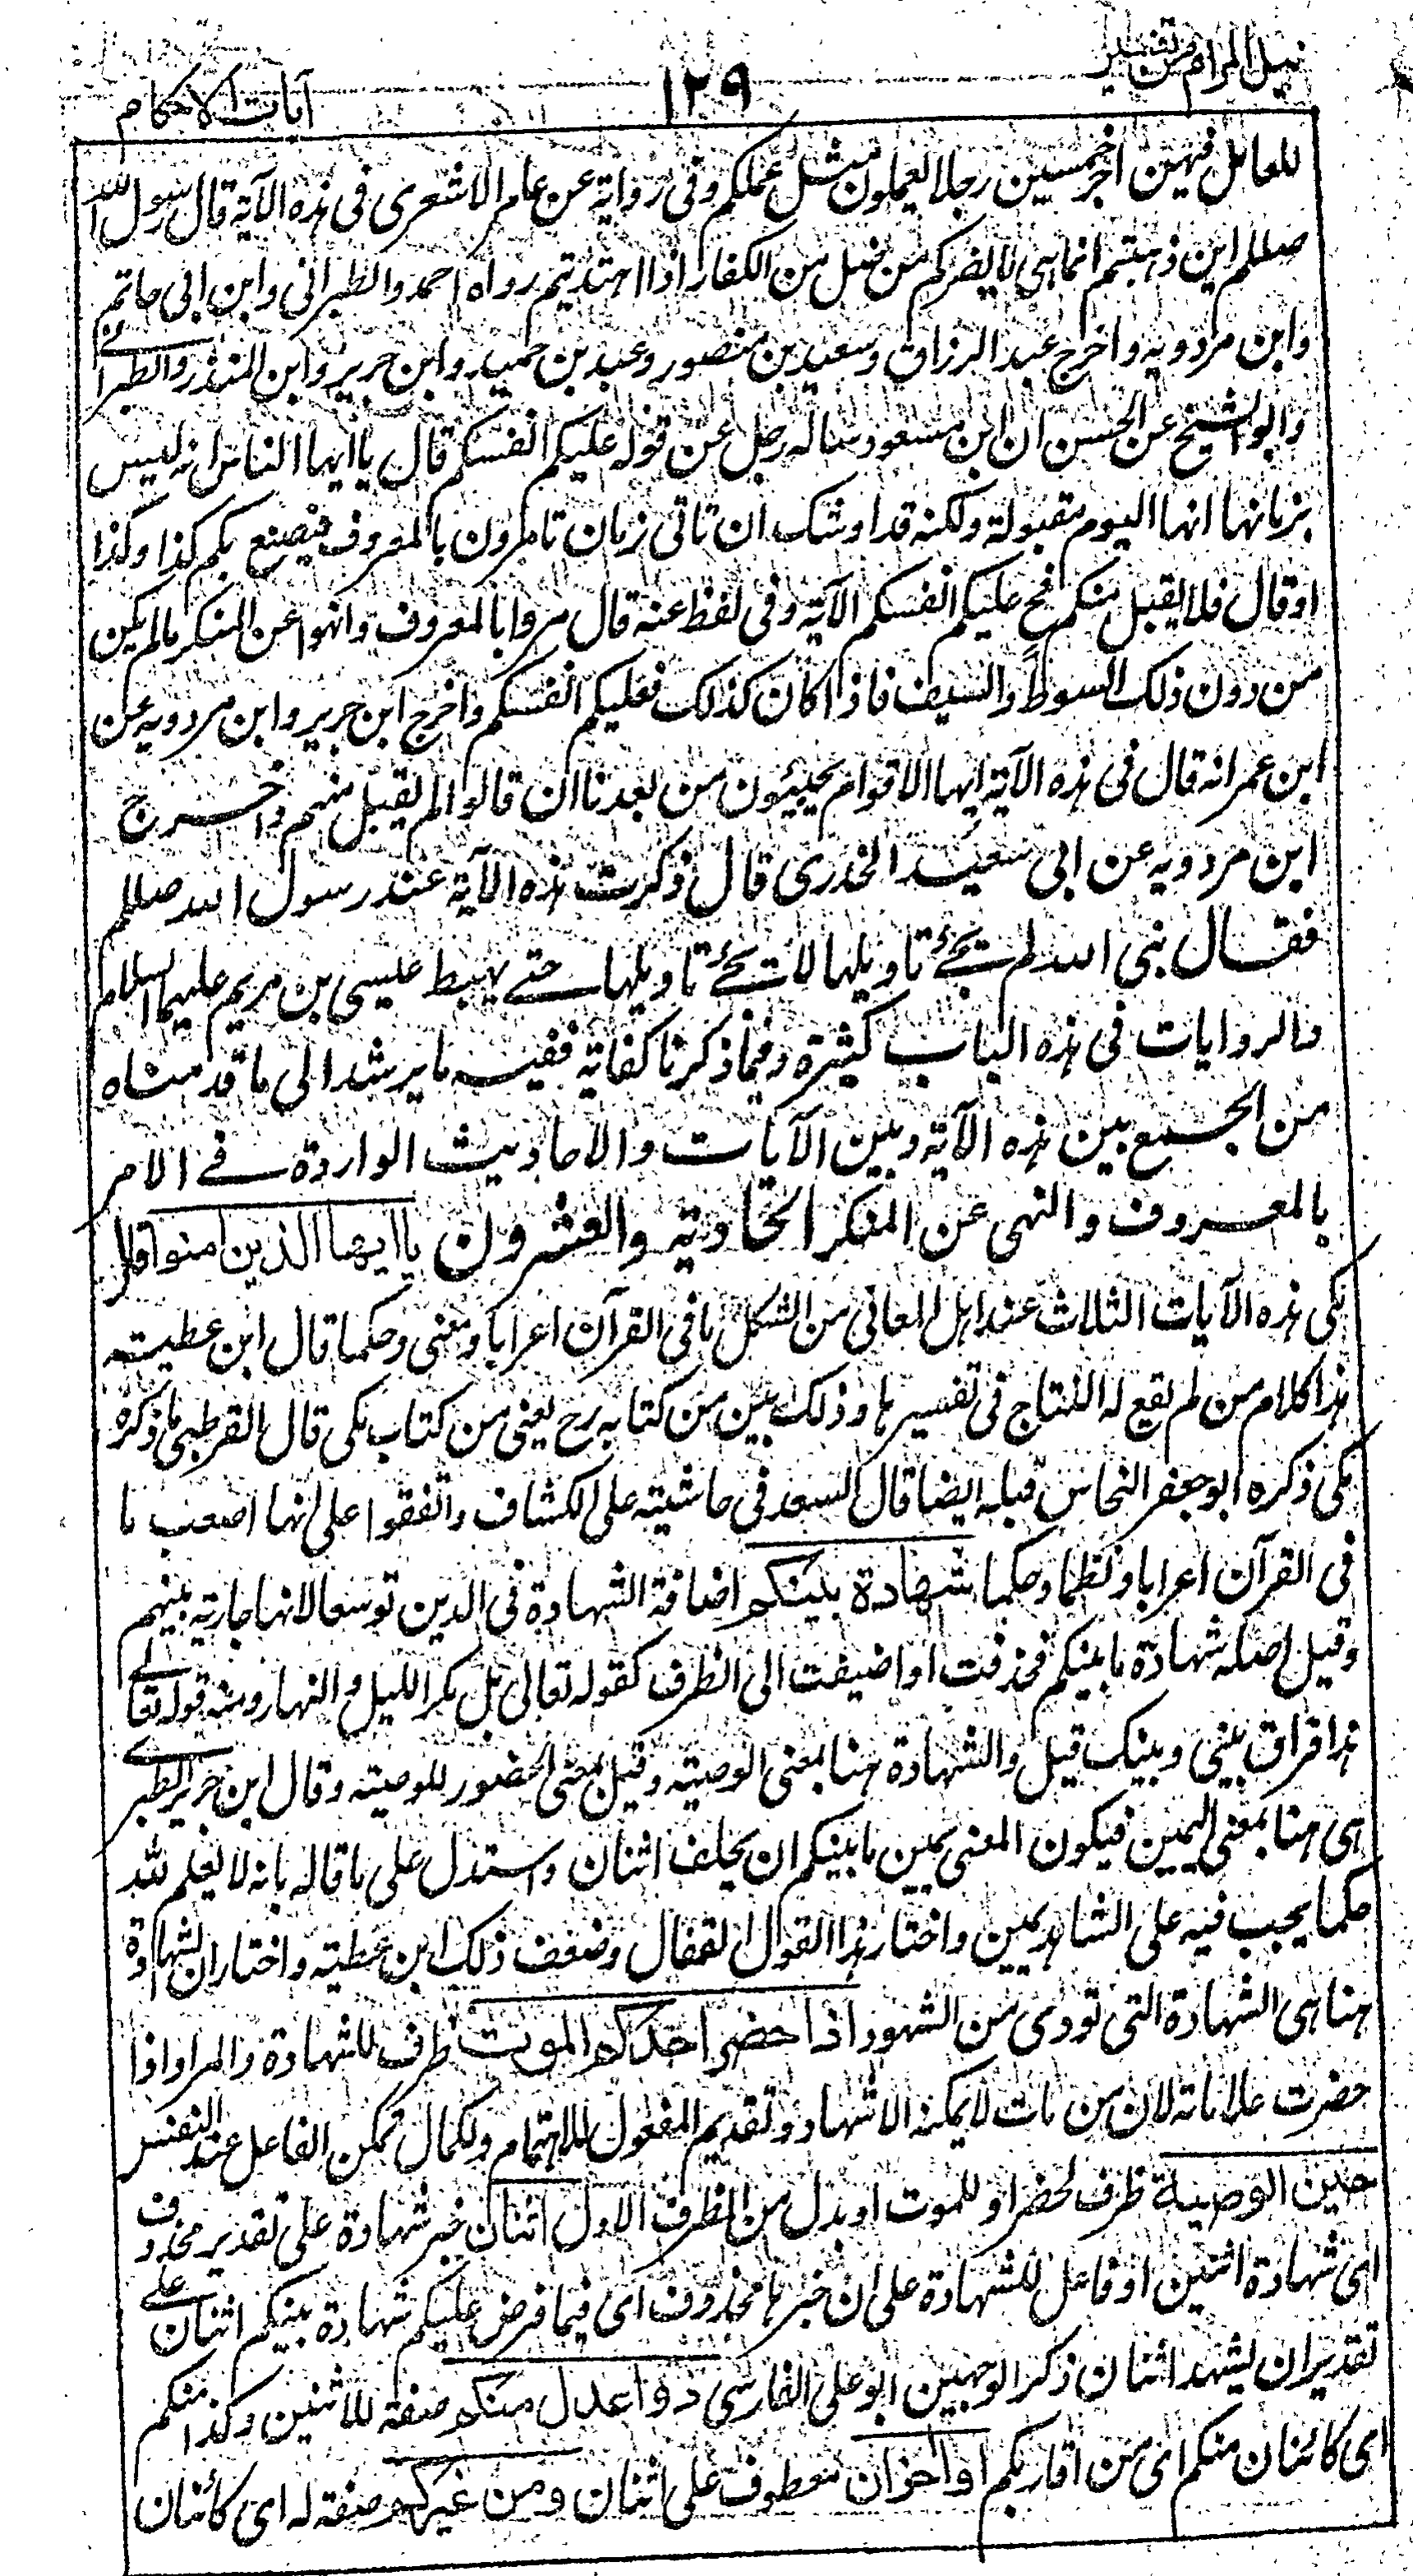 نیل المرام من تفسیر
۱۲۹
آیات الاحکام
للعامل فیهن اجر خمسین رجلا یعملون مثل عملکم وفی روایة عن عامر الاشعری فی هذه الآیة قال رسول الله
صللم این ذهبتم انما هی لا یضرکم من ضل من الکفار اذا اهتدیتم رواه احمد والطبرانی وابن ابی حاتم
وابن مردویه واخرج عبد الرزاق وسعید بن منصور وعبد بن حمید وابن جریر وابن المنذر والطبرانے
وابو الشیخ عن الحسن ان ابن مسعود ساله رجل عن قوله علیکم انفسکم قال یا ایها الناس انه لیس
بزمانها انها الیوم مقبولة ولکنه قد اوشک ان تاتی زمان تامرون بالمعروف فیصنع بکم کذا وکذا
او قال فلا یقبل منکم فح علیکم انفسکم الآیة وفی لفظ عنه قال مروا بالمعروف وانهوا عن المنکر مالم یکن
من دون ذلک السوط والسیف فاذا کان کذلک فعلیکم انفسکم واخرج ابن جریر وابن مردویه عن
ابن عمر انه قال فی هذه الآیة ایها الاقوام یجیئون من بعدنا ان قالوا لم یقبل منهم واخرج
ابن مردویه عن ابی سعید الخدری قال ذکرت هذه الآیة عند رسول الله صللم
فقال نبی الله لم تجئ تاویلها لا تجئ تاویلها حتے یهبط عیسی بن مریم علیهما السلام
والروایات فی هذه الباب کثیرة وفیما ذکرنا کفایة ففیه ما یرشد الی ما قدمناه
من الجمع بین هذه الآیة وبین الآیات والاحادیث الواردة فے الامر
بالمعروف والنهی عن المنکر الحادیة والعشرون یا ایها الذین امنوا قال
مکی هذه الآیات الثلاث عند اهل المعانی من اشکل ما فی القرآن اعرابا ومعنی وحکما قال ابن عطیته
هذا کلام من لم یقع له الثلج فی تفسیرها وذلک بین من کتابه رح یعنی من کتاب مکی قال القرطبی ما ذکره
مکی ذکره ابو جعفر النحاس قبله ایضا قال السعد فی حاشیته علی الکشاف واتفقوا علی انها اصعب ما
فی القرآن اعرابا ونظما وحکما شهادة بینکم اضافة الشهادة فی الدین توسعا لانها جاریة بینهم
وقیل اصله شهادة ما بینکم فحذفت او اضیفت الی الظرف کقوله تعالی بل مکر اللیل والنهار ومنه قوله تعالے
هذا فراق بینی وبینک قیل والشهادة هنا بمعنی الوصیته وقیل بمعنی الحضور للوصیته وقال ابن جریر الطبرے
هی هنا بمعنی الیمین فیکون المعنی یمین ما بینکم ان یحلف اثنان واستدل علی ما قاله بانه لا یعلم لله
حکما یجب فیه علی الشاهد یمین واختار هذا القول القفال وضعف ذلک ابن عطیته واختار ان الشهادة
هنا هی الشهادة التی تودی من الشهود اذا حضر احدکم الموت ظرف للشهادة والمراد اذا
حضرت علاماته لان من مات لا یمکنه الاشهاد وتقدیم المفعول للاهتمام ولکمال تمکن الفاعل عند النفس
حین الوصیة ظرف لحضر او للموت او بدل من الظرف الاول اثنان خبر شهادة علی تقدیر محذوف
ای شهادة اثنین او فاعل للشهادة علی ان خبرها محذوف ای فیما فرض علیکم شهادة بینکم اثنان علے
تقدیر ان یشهد اثنان ذکر الوجهین ابو علی الفارسی ذوا عدل منکم صفة للاثنین وکذا منکم
ای کائنان منکم ای من اقاربکم او اخران معطوف علی اثنان ومن غیرکم صفة له ای کائنان